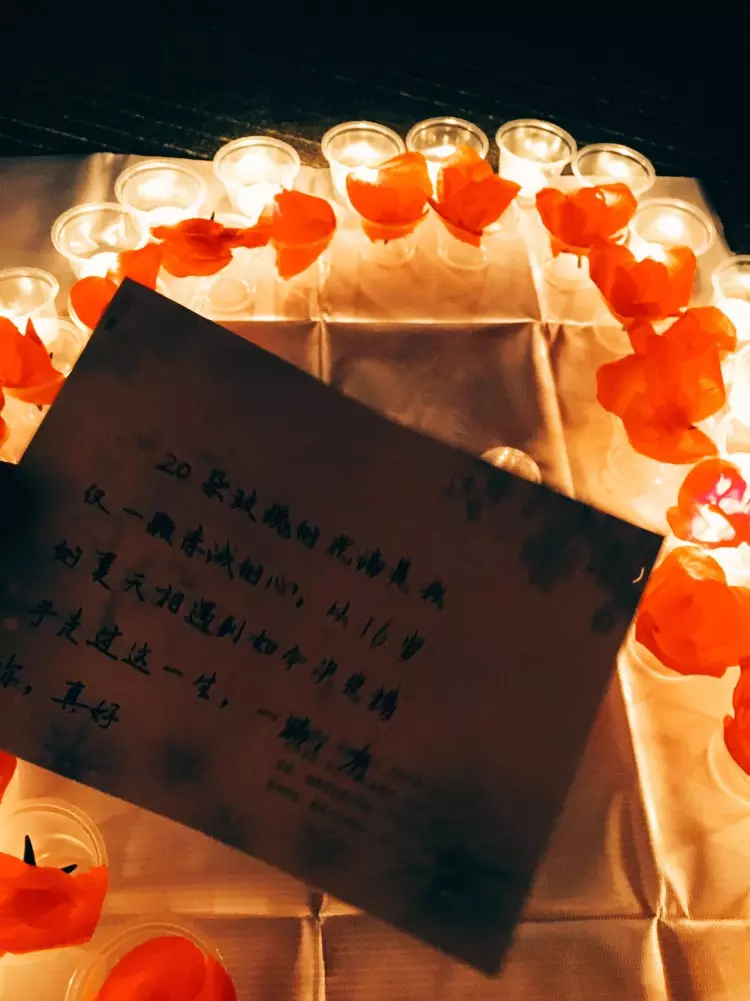 20朵玫瑰的花语是我
仅一颗赤诚的心，从16岁
的夏天相遇到如今决定携
手走过这一生，一路，有
你，真好